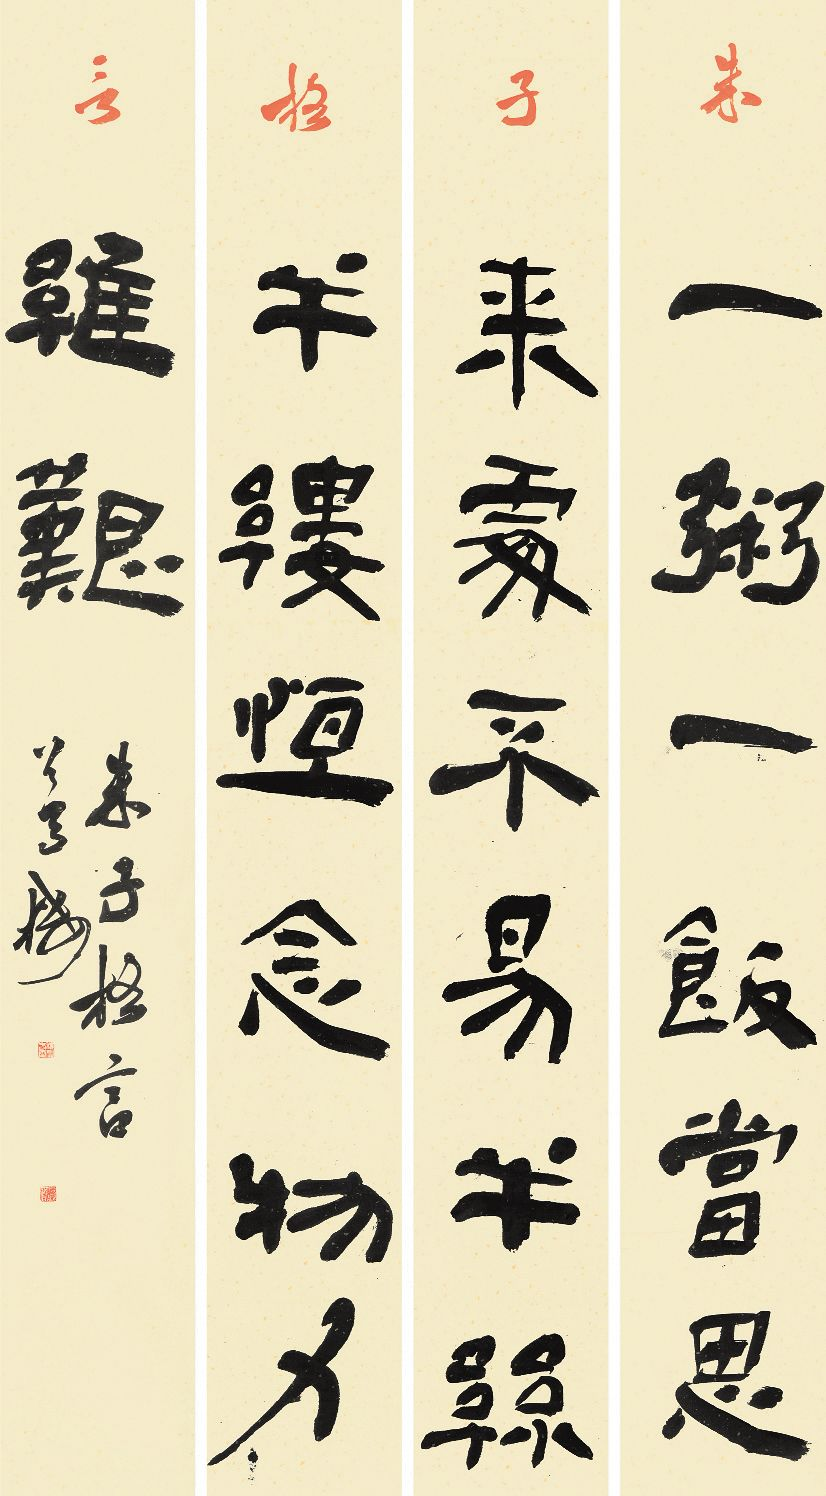 朱子格言
一粥一飯當思
来處不易半絲
半縷恒念物力
維艱
朱子格言